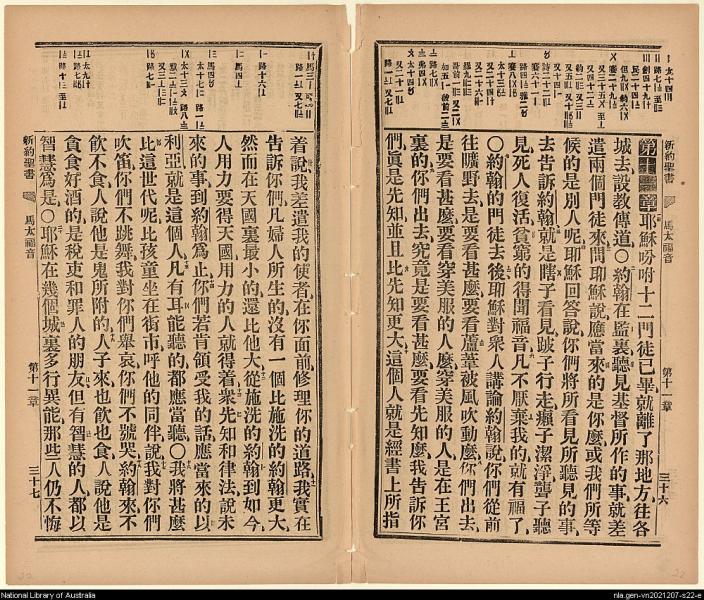 新約聖書
馬太福音
第十一章
三十六
第十一章耶穌吩咐十二門徒已畢就離了那地方往各
城去設教傳道○約翰在監裏聽見基督所作的事就差
遣兩個門徒來問耶穌說應當來的是你麼或我們所等
候的是別人呢耶穌回答說你們將所看見所聽見的事
去告訴約翰就是瞎子看見跛子行走癩子潔淨聾子聽
見死人復活貧窮的得聞福音凡不厭棄我的就有福了
○約翰的門徒去後耶穌對衆人講論約翰說你們從前
往曠野去是要看甚麼要看蘆葦被風吹動麼你們出去
是要看甚麼要看穿美服的人麼穿美服的人是在王宮
裏的你們出去究竟是要看甚麼要看先知麼我告訴你
們眞是先知並且比先知更大這個人就是經書上所指
着說我差遣我的使者在你面前修理你的道路我實在
告訴你們凡婦人所生的沒有一個比施洗的約翰更大
然而在天國裏最小的還比他大從施洗的約翰到如今
人用力要得天國用力的人就得着衆先知和律法說未
來的事到約翰爲止你們若肯領受我的話應當來的以
利亞就是這個人凡有耳能聽的都應當聽○我將甚麼
比這世代呢比孩童坐在街市呼他的同伴說我對你們
吹笛你們不跳舞我對你們舉哀你們不號哭約翰來不
飲不食人說他是鬼所附的人子來也飲也食人說他是
貪食好酒的是稅吏和罪人的朋友但有智慧的人都以
智慧爲是○耶穌在幾個城裏多行異能那些人仍不悔
新約聖書
馬太福音
第十一章
三十七
National Library of Australia
nla.gen-vn2021207-s22-e